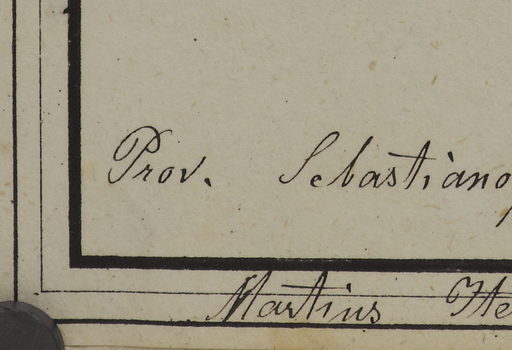 Prov. Sebastiano
Martius